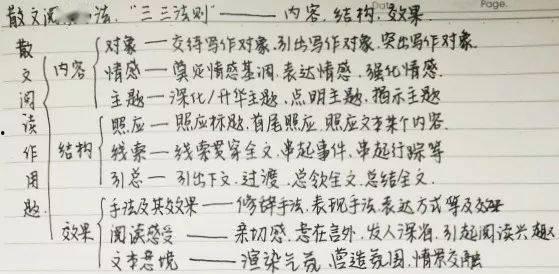 Page.
散文阅 法.“三三法则”——内容.结构.效果.
散文阅读作用题
内容
对象—交待写作对象.引出写作对象.突出写作对象.
情感—奠定情感基调.表达情感.强化情感.
主题—深化/升华主题.点明主题.揭示主题
结构
照应—照应标题.首尾照应.照应文本某个内容.
线索—线索贯穿全文.串起事件.串起行踪等
引总—引出下文.过渡.总领全文.总结全文.
效果
手法及其效果——修辞手法.表现手法.表达方式等及效果
阅读感受——亲切感.意在言外.发人深省.引起阅读兴趣
文本意境——渲染气氛.营造氛围.情景交融